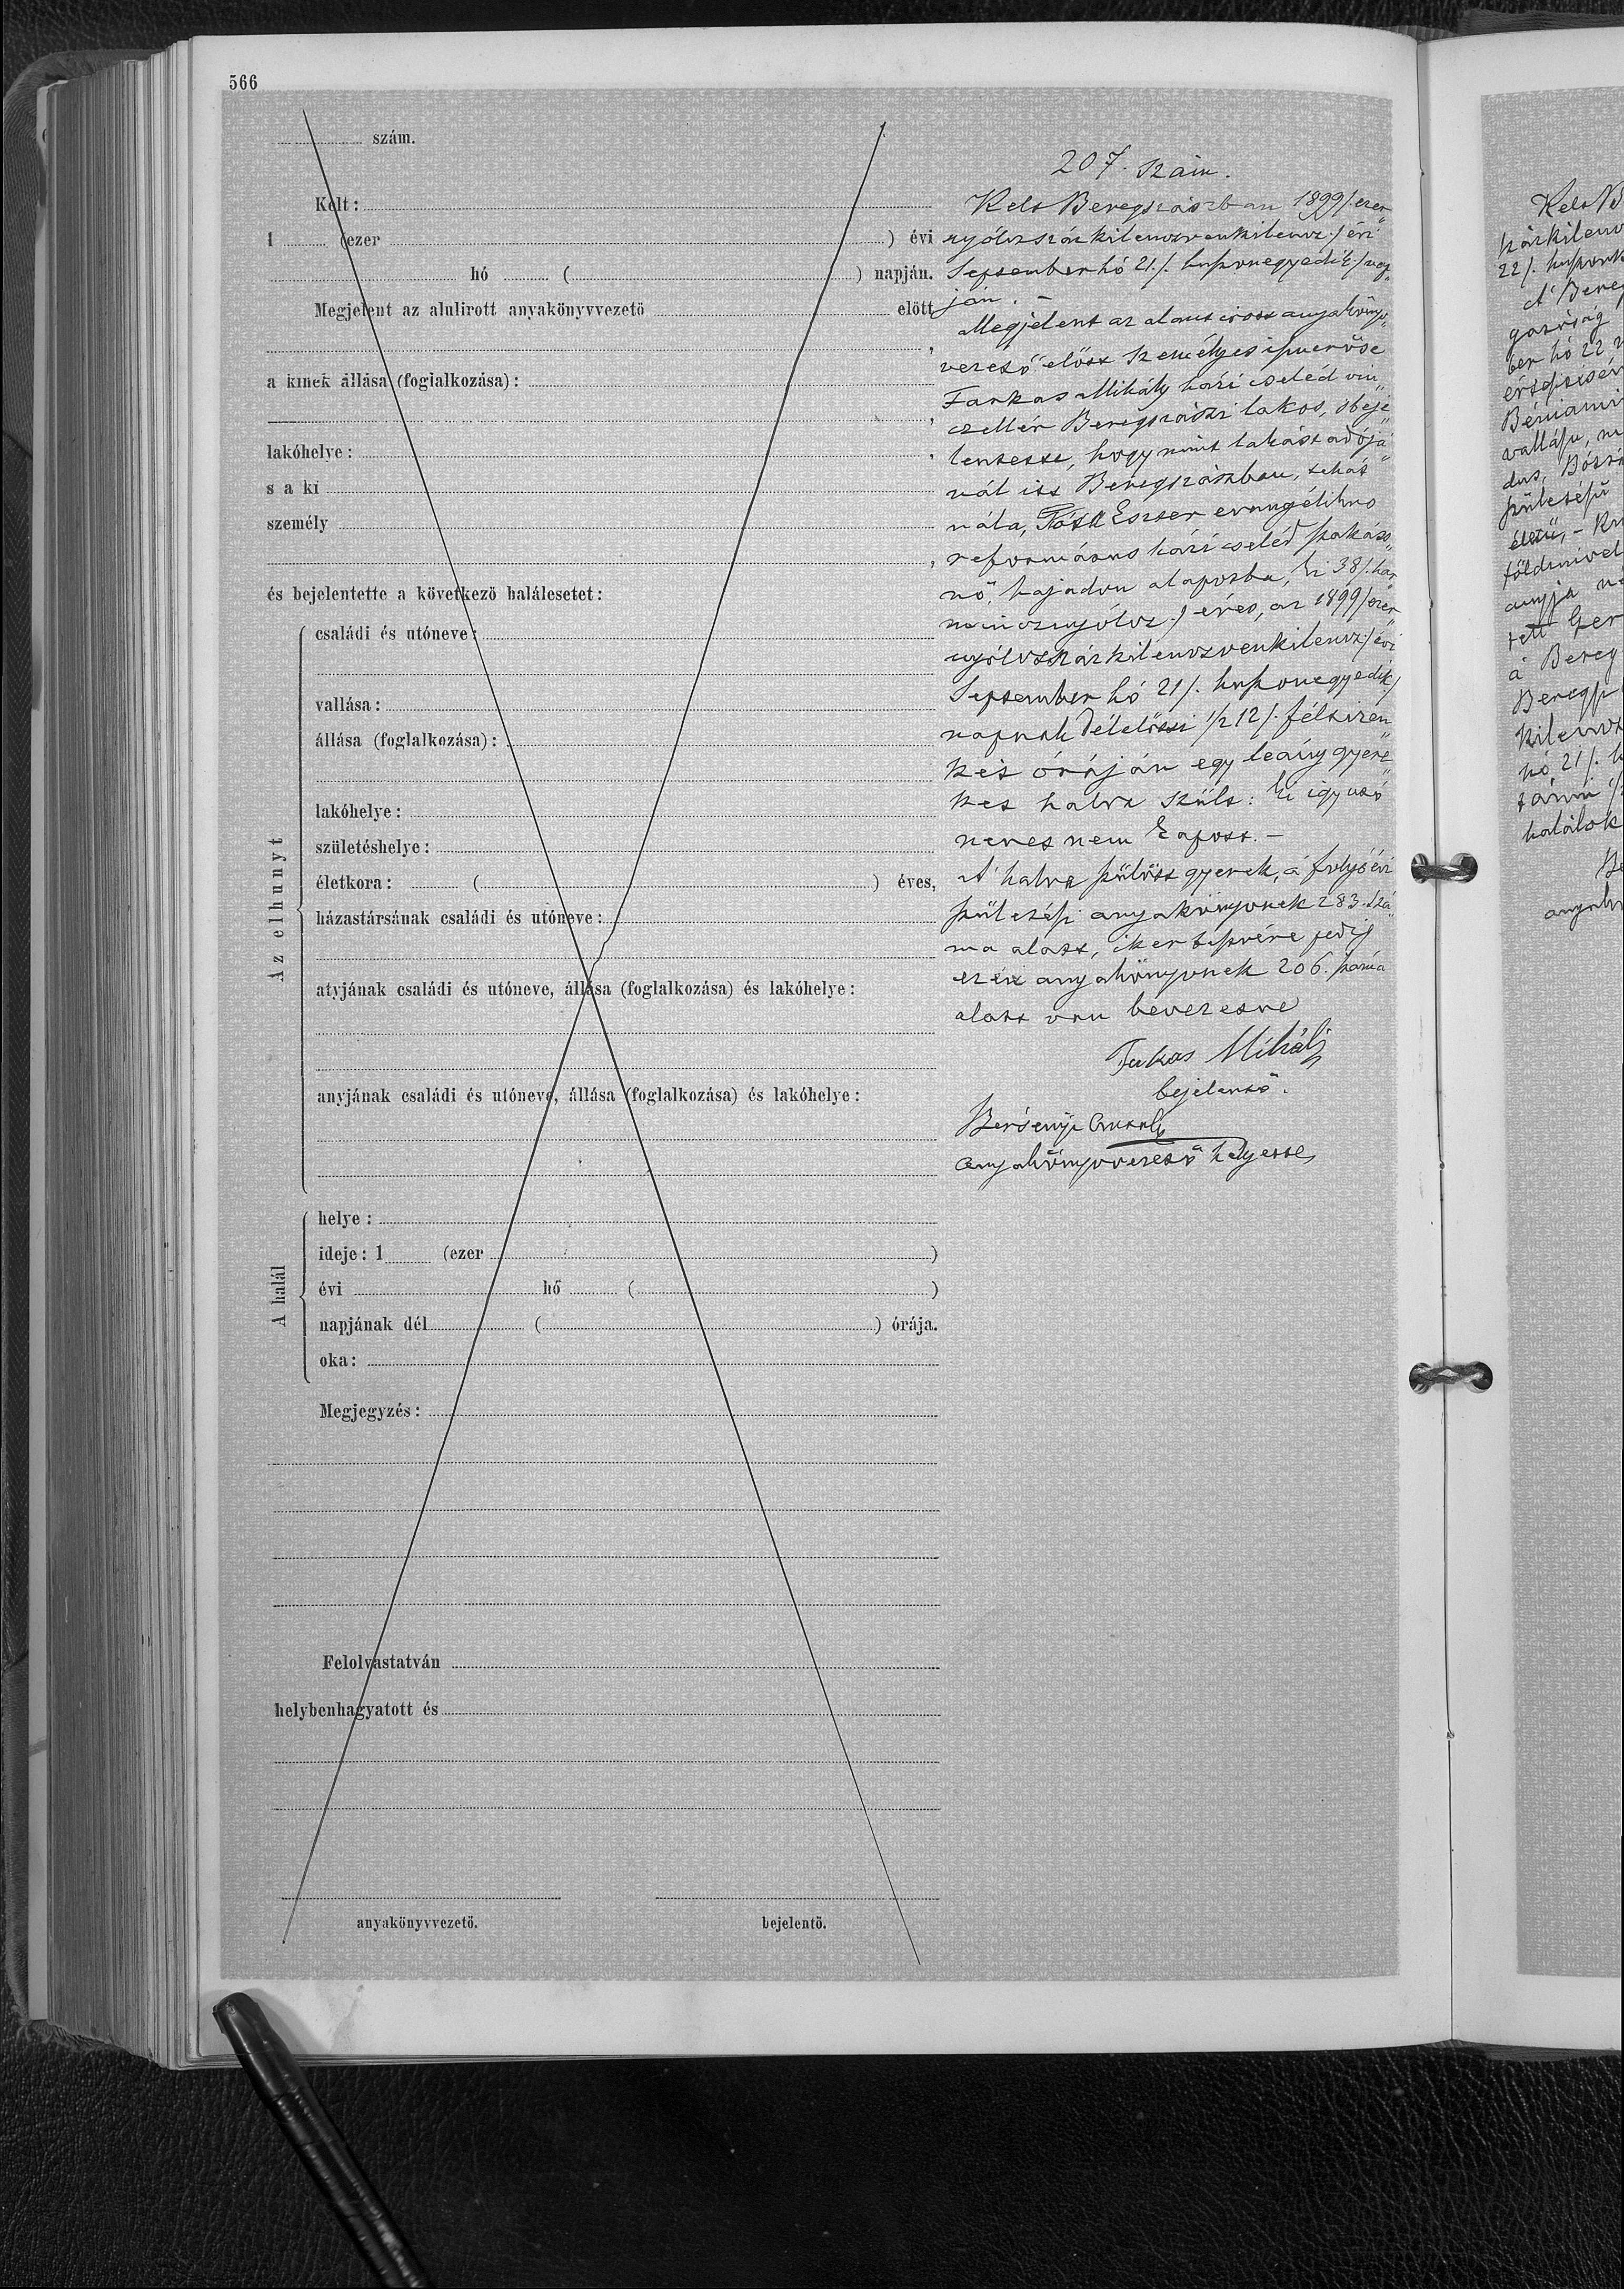 566
szám.
Kelt:
1 (ezer ) évi
hó ( ) napján.
Megjelent az alulirott anyakönyvvezető előtt
,
a kinek állása (foglalkozása):
,
lakóhelye: ,
s a ki
személy
,
és bejelentette a következő halálesetet:
Az elhunyt
családi és utóneve:
vallása:
állása (foglalkozása):
lakóhelye:
születéshelye:
életkora: ( ) éves,
házastársának családi és utóneve:
atyjának családi és utóneve, állása (foglalkozása) és lakóhelye:
anyjának családi és utóneve, állása (foglalkozása) és lakóhelye:
A halál
helye:
ideje: 1 (ezer )
évi hó ( )
napjának dél ( ) órája.
oka:
Megjegyzés:
Felolvastatván
helybenhagyatott és
anyakönyvvezető. bejelentő.
207. szám.
Kelt Beregszászban 1899/. ezer„
nyólczszázkilenczvenkilencz./ évi
September hó 21./. huszonegyedik./ nap„
ján. –
Megjelent az alant irott anyakönyv„
vezető előtt személyes ismerőse
Farkas Mihály házi cseléd vin„
czellér Beregszászi lakos, s beje„
lentette, hogy mint lakást adójá„
nál itt Beregszászban, tehát
nála, Tóth Eszter evangélikus
református házi cseléd szakács„
nő, hajadon alapotba, ki 38/. har„
mincznyólcz./ éves, az 1899/ ezer
nyólczszázkilenczvenkilencz./ évi
September hó 21/. huszonegyedik./
napnak délelőtti 1/2 12/. féltizen„
két óráján egy leány gyere„
ket halva szült: ki igy utó
nevet nem kapott. –
A' halva szülött gyerek, a' folyó évi
születési anyakönyvnek 283. szá„
ma alatt, iker testvére pedig
ezen anyakönyvnek 206. száma
alatt van bevezetve
Farkas Mihálj
bejelentő.
Bersenyi
anyakönyvvezető helyettes
Kelt B
22/.
A' Bere
ber hó 22
hó 21/. h